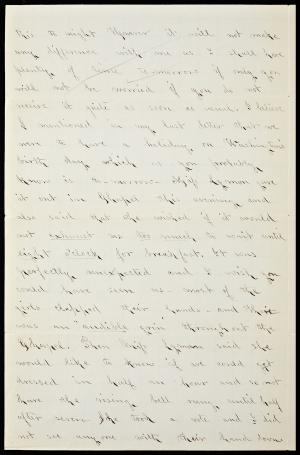 this to night. However it will not make
any difference with me as I shall have
plenty of time to-morrow if may you
will not be worried if you do not
receive it quite as soon as usual. I believe
I mentioned in my last letter that we
were to have a holiday on Washington's
birth day which as you probably
know is to-morrow. Miss Lyman gave
it out in Chapel this evening and
also said that she wished if it would
not exhaust us too much to wait until
eight o'clock for breakfast. It was
perfectly unexpected and I wish you
could have seen us - most of the
girls clapped their hands - and there
was an "audible grin" throughout the
Chapel. Then Miss Lyman said she
would like to know if we could get
dressed in half an hour and so not
have the rising bell rung until half
after seven. She took a vote and I did
not see any one with their hand down